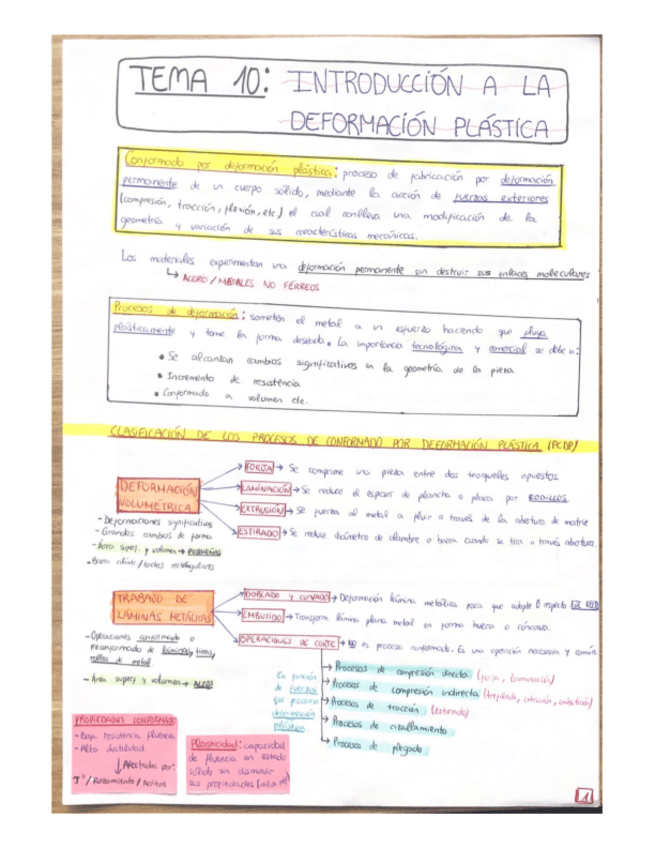 TEMA 10: INTRODUCCIÓN A LA
DEFORMACIÓN PLÁSTICA
Conformado por deformación plástica: proceso de fabricación por deformación
permanente de un cuerpo sólido, mediante la acción de fuerzas exteriores
(compresión, tracción, flexión, etc.) el cual conlleva una modificación de la
geometría y variación de sus características mecánicas.
Los materiales experimentan una deformación permanente sin destruir sus enlaces moleculares
↳ ACERO / METALES NO FÉRREOS
Procesos de deformación: someten el metal a un esfuerzo haciendo que fluya
plásticamente y tome la forma deseada. La importancia tecnológica y comercial se debe a:
• Se alcanzan cambios significativos en la geometría de la pieza
• Incremento de resistencia
• Conformado a volumen etc.
CLASIFICACIÓN DE LOS PROCESOS DE CONFORMADO POR DEFORMACIÓN PLÁSTICA (PCDP)
DEFORMACIÓN
VOLUMÉTRICA
- Deformaciones significativas
- Grandes cambios de forma
- Área superf. y volumen → PEQUEÑAS
- Barra /tochos rectangulares
FORJA → Se comprime una pieza entre dos troqueles opuestos
LAMINACIÓN → Se reduce el espesor de plancha o placa por RODILLOS
EXTRUSIÓN → Se fuerza al metal a fluir a través de la abertura de matriz
ESTIRADO → Se reduce diámetro de alambre o barra cuando se tira a través abertura.
TRABAJO DE
LÁMINAS METÁLICAS
- Operaciones conformado o
preconformado de láminas, tiras,
rollos de metal.
- Área superf y volumen → ALTOS
DOBLADO Y CURVADO → Deformación lámina metálica para que adopte respecto
EMBUTIDO → Transform lámina plana metal en forma hueca o cóncava.
OPERACIONES DE CORTE → NO es proceso conformado. Es una operación necesaria y común.
En función
de fuerzas
que provocan
deformación
plástica
→ Procesos de compresión directa (forja, laminación)
→ Procesos de compresión indirecta (trefilado, extrusión, embutición)
→ Procesos de tracción (estirado)
→ Procesos de cizallamiento
→ Procesos de plegado
PROPIEDADES CONFORMADO
- Baja resistencia fluencia
- Alta ductilidad
↓ Afectadas por:
Tª / Rozamiento / Acritud
Plasticidad: capacidad
de fluencia en estado
sólido sin disminuir
sus propiedades
1